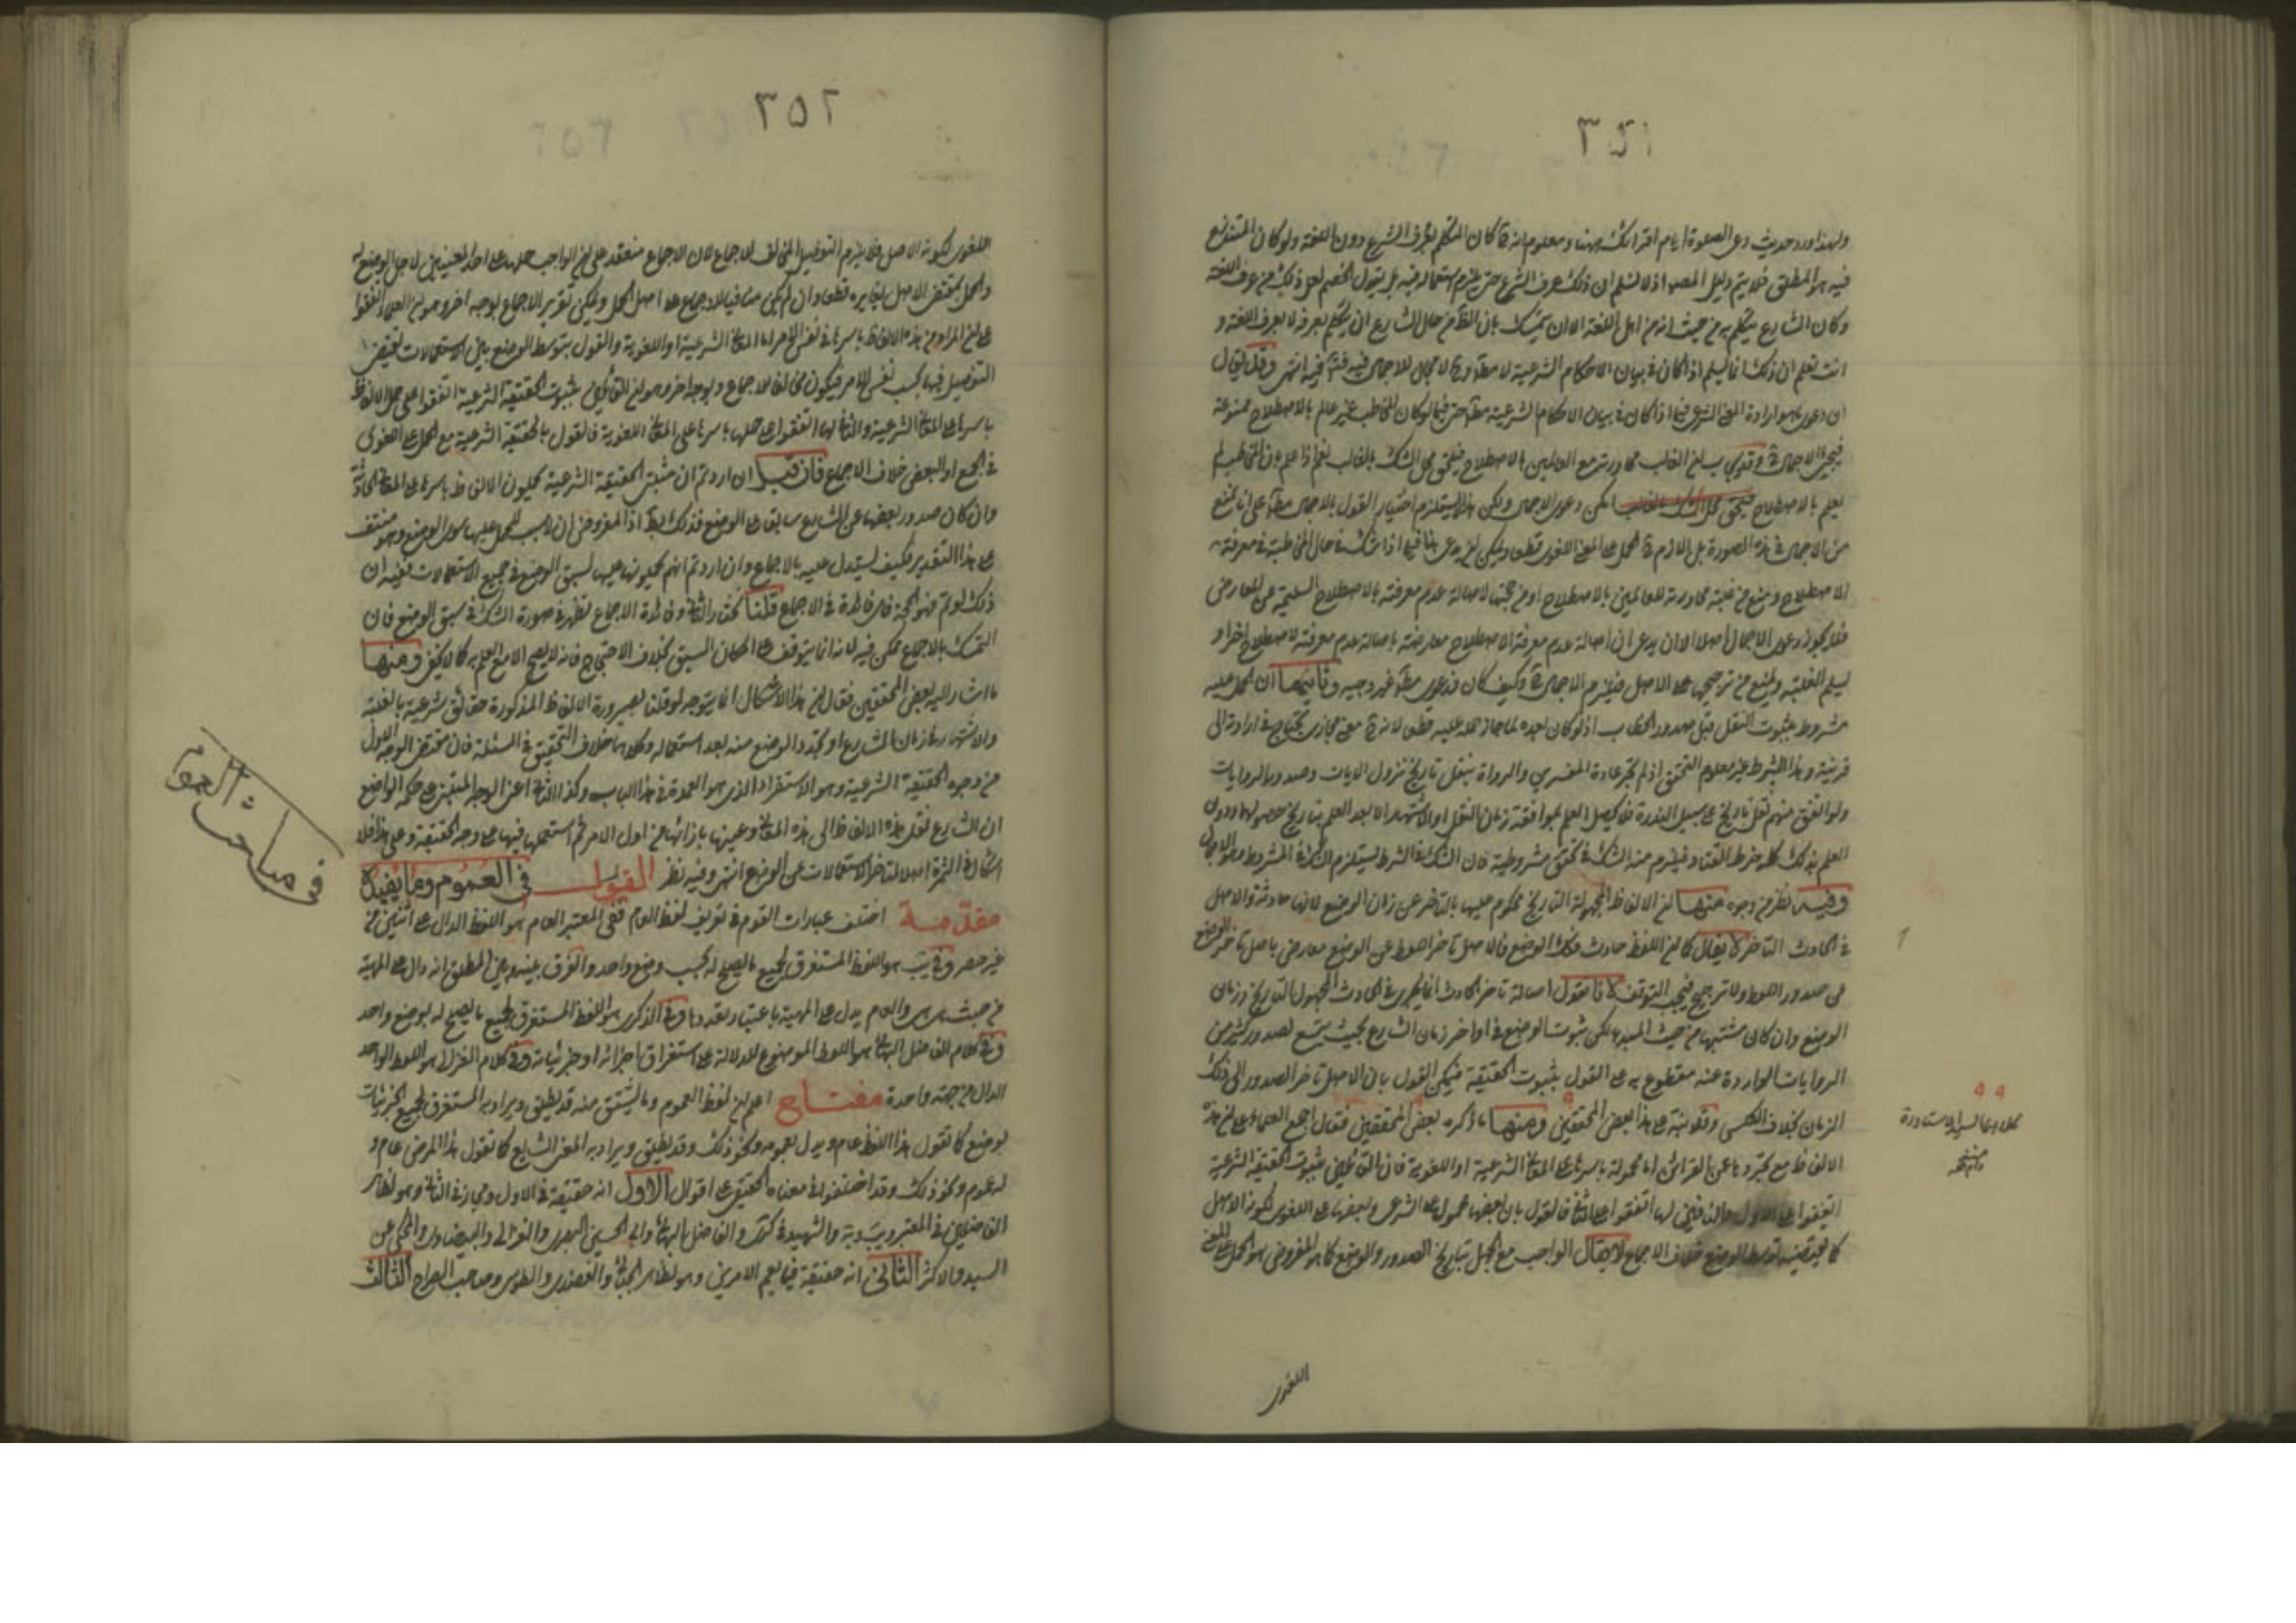 ٣٥١
ولهذا ورد حديث دعى الصلوة ايام اقرائك ههنا ومعلوم انه ح كان المتكلم بعرف الشرع دون اللغة ولو كان المتنازع
فيه هو المطلق فلا يتم دليل المصه اذ لا نسلم ان ذلك عرف الشرع حتى يلزم استعماله فيه بل يقول الخصم لعل ذلك من عرف اللغة
وكان الشارع يتكلم به من حيث انه من اهل اللغة الا ان يتمسك بان الظ من حال الشارع ان يتكلم بعرفه لا بعرف اللغة و
انت تعلم ان ذلك انما يسلم اذا كان في بيان الاحكام الشرعية لا مطا وح لا مجال للاجمال فيه فت فيه انتهى وقد يقال
ان دعوى ارادة المعنى الشرعى فيما اذا كان في بيان الاحكام الشرعية مطا حتى فيما لو كان المخاطب غير عالم بالاصطلاح ممنوعة
فيجئ الاجمال ح وقد يجاب بان الغالب محاورته مع العالمين بالاصطلاح فيلحق محل الشك بالغالب نعم اذا علم بان المخاطب لم
يعلم بالاصطلاح امكن دعوى الاجمال ولكن هذا لا يستلزم اختيار القول بالاجمال مطا على انا نمنع
من الاجمال في هذه الصورة بل اللازم ح الحمل على المعنى اللغوى قطعا ويمكن ان يدعى هنا فيما اذا شك في حال المخاطب في معرفة
الاصطلاح ومنع من غلبة محاورته للعالمين بالاصطلاح او من حجيتها لاصالة عدم معرفته بالاصطلاح السليمة عن المعارض
فلا يجوز دعوى الاجمال اصلا الا ان يدعى ان اصالة عدم معرفة الاصطلاح معارضة باصالة عدم معرفة لاصطلاح اخر او
يسلم الغلبة ويمنع من ترجيحها على الاصل فيلزم الاجمال ح وكيف كان فدعوى مطا غير وجيه وثانيهما ان الحمل عليه
مشروط بثبوت النقل قبل صدور الخطاب اذ لو كان بعده لما جاز حمله عليه قطعا لانه ح معنى مجازى يحتاج في ارادة الى
قرينة وهذا الشرط غير معلوم التحقق اذ لم يجر عادة المفسرين والرواة بنقل تاريخ نزول الايات وصدور الروايات
ولو اتفق منهم نقل تاريخ على سبيل الندرة فلا يحصل العلم بموافقة زمان النقل او الاشتهار الا بعد العلم بتاريخ حصولهما ودون
العلم بذلك كله خرط القتاد فيلزم منه الشك في تحقق مشروطية فان الشك في الشرط يستلزم الشك في المشروط وهو الاجمال
وفيه نظر من وجوه منها ان الالفاظ المجهولة التاريخ محكوم عليها بالتاخر عن زمان الوضع لانها حادثة والاصل
في الحادث التاخر لا يقال كما ان اللفظ حادث فكذا الوضع فالاصل تاخر اللفظ عن الوضع معارض باصل تاخر الوضع
عن صدور اللفظ ولا ترجيح فيجب التوقف لانا نقول اصالة تاخر الحادث انما يجرى في الحادث المجهول التاريخ وزمان
الوضع وان كان مشتبها من حيث المبدء لكن ثبوت الوضع في اواخر زمان الشارع بحيث يسع لصدور كثير من
الروايات الواردة عنه مقطوع به على القول بثبوت الحقيقة فيمكن القول بان الاصل تاخر الصدور الى ذلك
الزمان بخلاف العكس وقد نبه على هذا بعض المحققين ومنها ما ذكره بعض المحققين فقال اجمع العلماء على ان هذه
الالفاظ مع تجردها عن القرائن اما محمولة باسرها على المعانى الشرعية او اللغوية فان القائلين بثبوت الحقيقة الشرعية
اتفقوا على الاول والنافين لها اتفقوا على الثانى فالقول بان بعضها محمول على الشرعى وبعضها على اللغوى لكونه الاصل
كما يقتضيه توسط الوضع خلاف الاجماع لا يقال الواجب مع الجهل بتاريخ الصدور والوضع كما هو المفروض هو الحمل على المعنى
اللغوى
٣٥٢
اللغوى لكونه الاصل فلا يلزم التفصيل المخالف للاجماع لان الاجماع منعقد على ان الواجب حملها على احد المعنيين لاجل الوضع له
والحمل بمقتضى الاصل يغايره قطعا وان لم يكن منافيا للاجماع على اصل الحمل ويمكن تقرير الاجماع بوجه اخر وهو ان العلماء اتفقوا
على ان المراد من هذه الالفاظ باسرها في نفس الامر اما المعانى الشرعية او اللغوية والقول بتوسط الوضع بين الاستعمالات يقتضى
التفصيل فيها بحسب نفس الامر فيكون مخالفا للاجماع وبوجه اخر وهو ان القائلين بثبوت الحقيقة الشرعية اتفقوا على حمل الالفاظ
باسرها على المعانى الشرعية والنافين لها اتفقوا على حملها باسرها على المعانى اللغوية فالقول بالحقيقة الشرعية مع الحمل على اللغوى
في الجميع او البعض خلاف الاجماع فان قيل ان اردتم ان مثبتى الحقيقة الشرعية يحملون الالفاظ باسرها على المعانى الحادثة
وان كان صدور بعضها عن الشارع سابقا على الوضع فذلك بط اذ المفروض ان لا سبب للحمل عليها سوى الوضع وهو منتف
على هذا التقدير فكيف يستدل عليه بالاجماع وان اردتم انهم يحملونها عليها لسبق الوضع في جميع الاستعمالات ففيه ان
ذلك لو تم فهو الحجة فاى فائدة في الاجماع قلنا نختار الثانى وفائدة الاجماع تظهر في صورة الشك في سبق الوضع فان
التمسك بالاجماع ممكن فيه لانه انما يتوقف على امكان السبق بخلاف الاحتجاج فانه لا يصح الا مع العلم به كما لا يخفى ومنها
ما اشار اليه بعض المحققين فقال ان هذا الاشكال انما يتوجه لو قلنا بصيرورة الالفاظ المذكورة حقائق شرعية بالغلبة
والاشتهار في زمان الشارع او بتجدد الوضع منه بعد استعماله وكلاهما خلاف التحقيق في المسئلة فان مقتضى الوجه الاول
من وجوه الحقيقة الشرعية وهو الاستقراء الذى هو العمدة في هذا الباب وكذا الثانى اعنى الوجه المبتنى على حكمة الواضع
ان الشارع نقل هذه الالفاظ الى هذه المعانى وعينها بازائها من اول الامر ثم استعملها فيها على وجه الحقيقة وعلى هذا فلا
اشكال في الثمرة اصلا لتاخر الاستعمالات عن الوضع انتهى وفيه نظر القول في العموم وما يفيده
مقدمة اختلف عبارات القوم في تعريف لفظ العام ففى المعتبر العام هو اللفظ الدال على اثنين من
غير حصر وفى يب هو اللفظ المستغرق لجميع ما يصلح له بحسب وضع واحد والفرق بينه وبين المطلق انه دال على المهية
من حيث هى هى والعام يدل على المهية باعتبار تعددها وفى الذكرى هو اللفظ المستغرق لجميع ما يصلح له بوضع واحد
وفى كلام الفاضل البهائى هو اللفظ الموضوع للدلالة على استغراق اجزائه او جزئياته وفى كلام الغزالى هو اللفظ الواحد
الدال من جهة واحدة مفتاح اعلم ان لفظ العموم وما يشتق منه قد يطلق ويراد به المستغرق لجميع الجزئيات
بوضع كما تقول هذا اللفظ عام ويدل بعمومه ونحو ذلك وقد يطلق ويراد به المعنى الشايع كما تقول هذا المرض عام و
له عموم ونحو ذلك وقد اختلفوا في معناه الحقيقى على اقوال الاول انه حقيقة في الاول ومجاز في الثانى وهو لظاهر
الفاضلين في المعتبر ويب ويه والشهيد في كرى والفاضل البهائى وابى الحسين البصرى والغزالى والبيضاوى والمحكى عن
السيد والاكثر الثانى انه حقيقة فيما يعم الامرين وهو لظاهر الجبائى والعضدى والطوسى وصاحب المعراج الثالث
في مباحث العموم